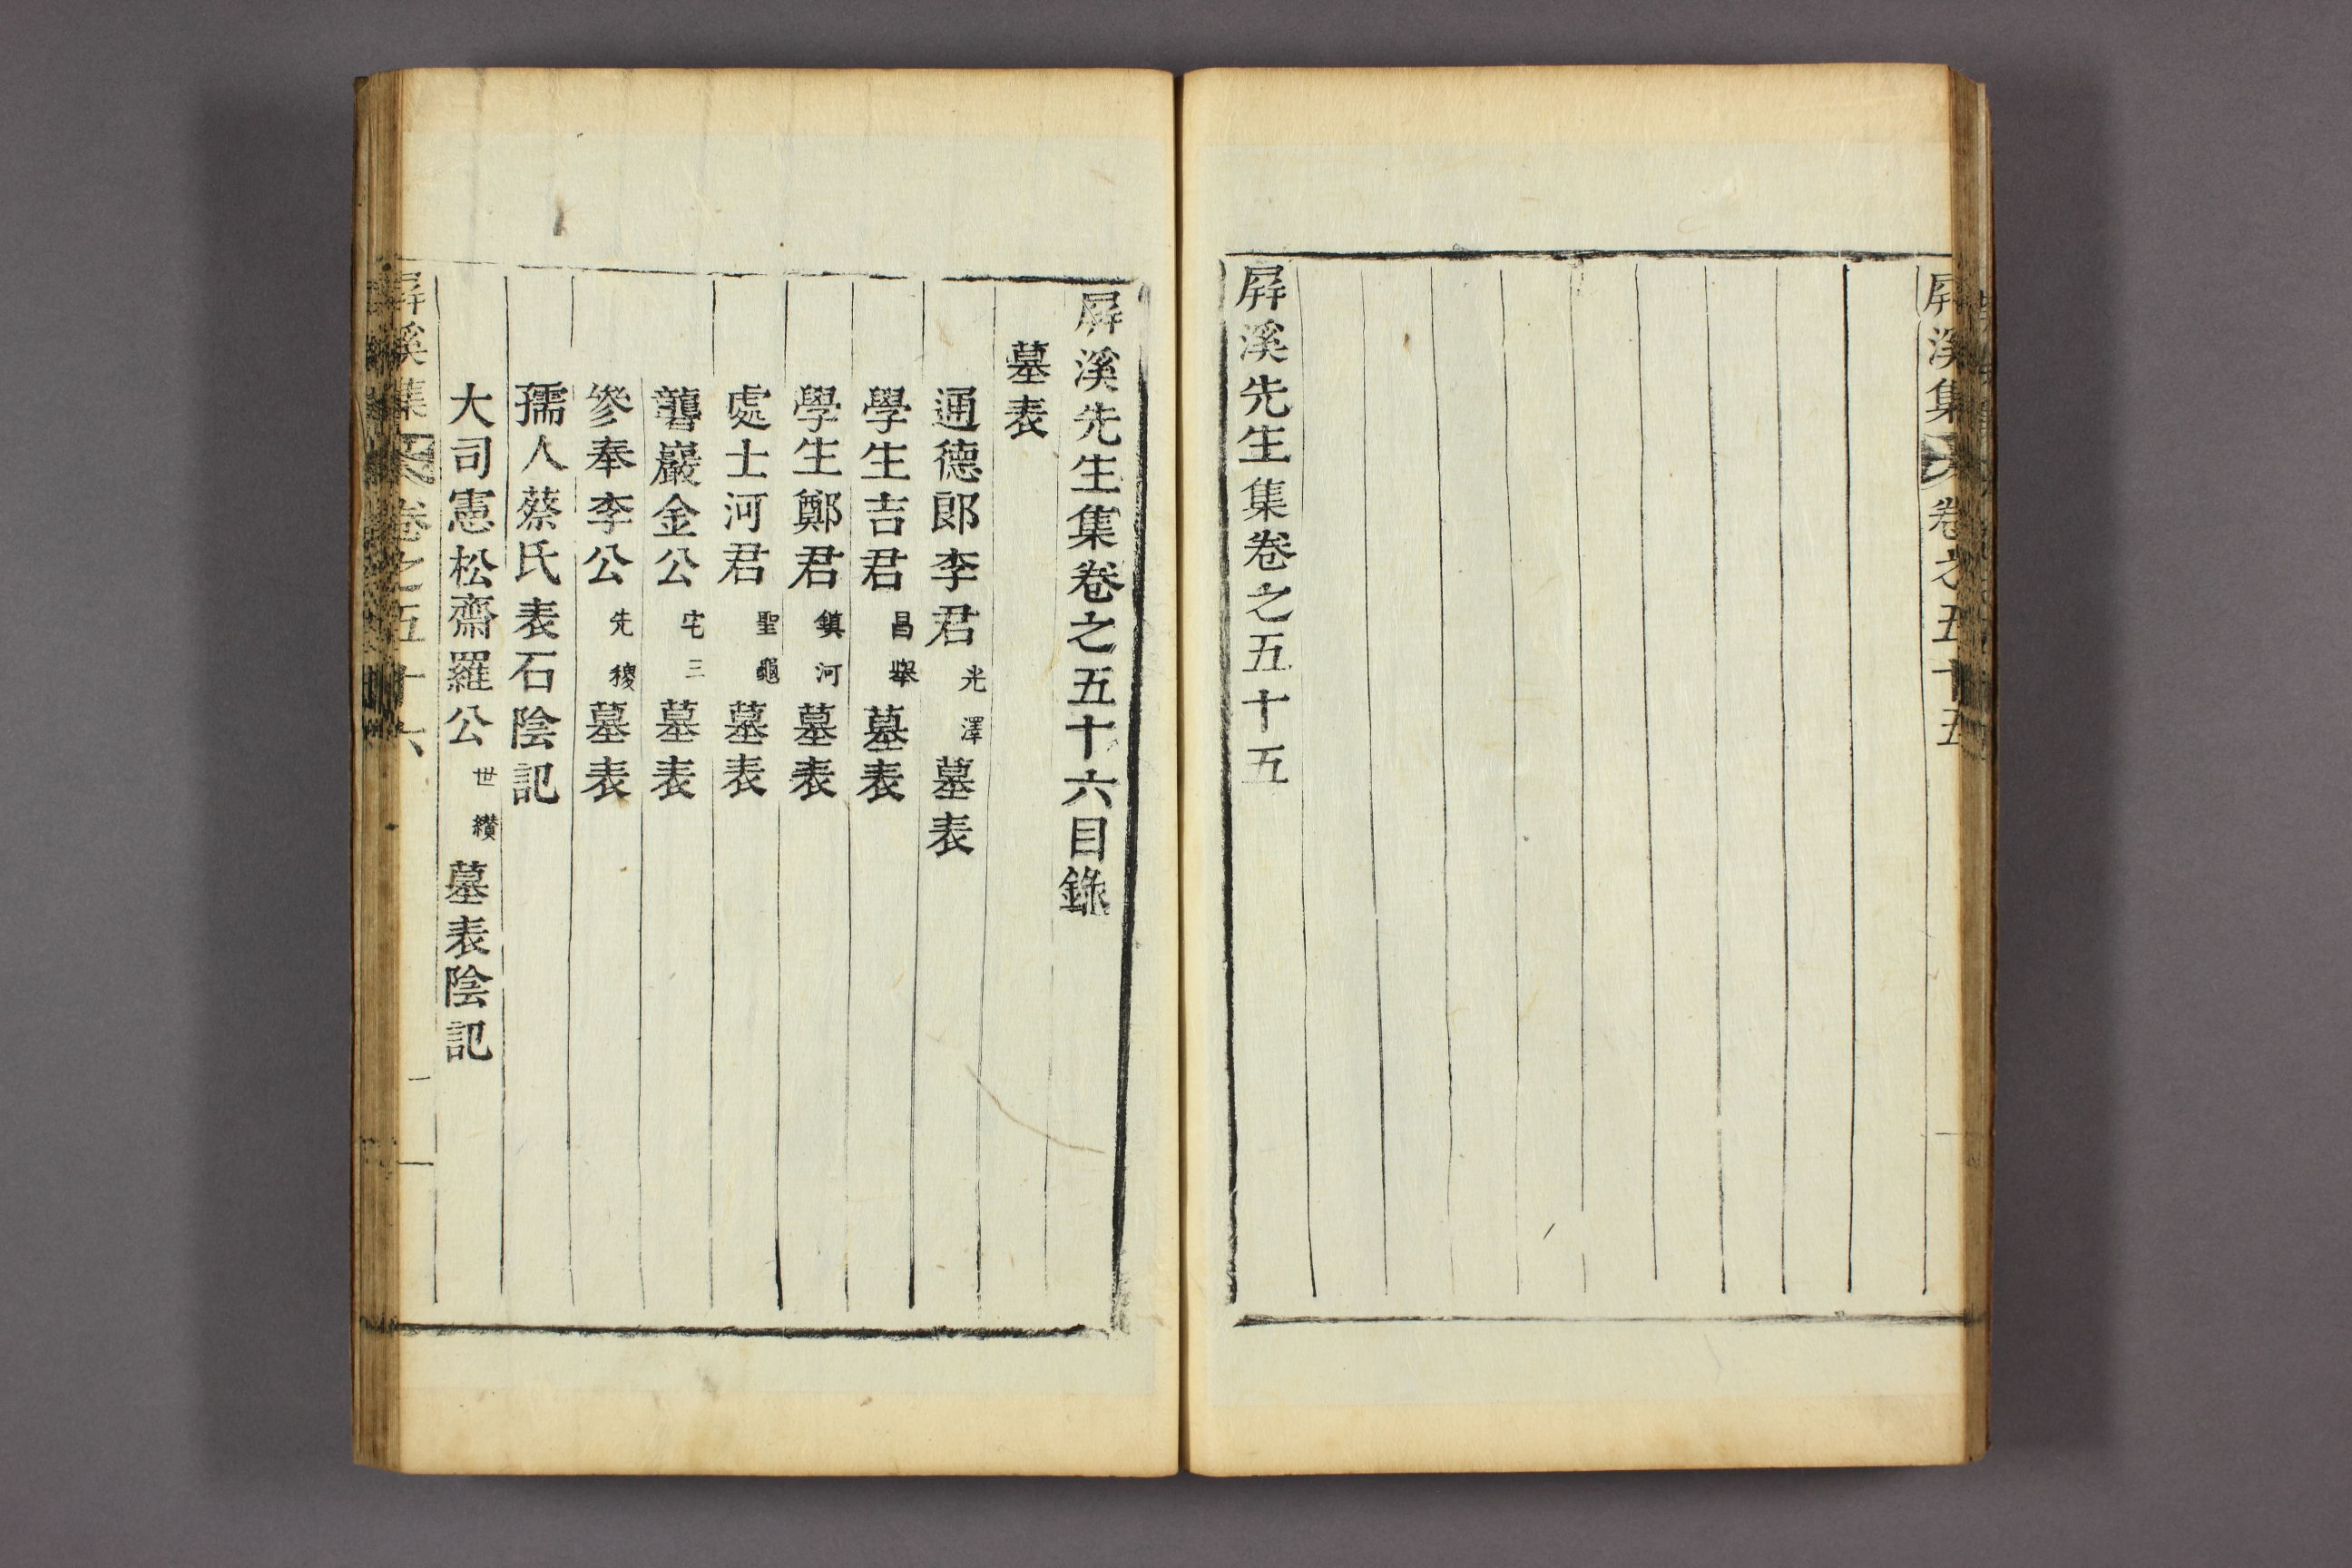 屛溪集
卷之五十五
屛溪先生集卷之五十五
屛溪先生集卷之五十六目錄
墓表
通德郎李君光澤墓表
學生吉君昌擧墓表
學生鄭君鎭河墓表
處士河君聖龜墓表
聾巖金公宅三墓表
參奉李公先稷墓表
孺人蔡氏表石陰記
大司憲松齋羅公世纘墓表陰記
屛溪集
卷之五十六
一